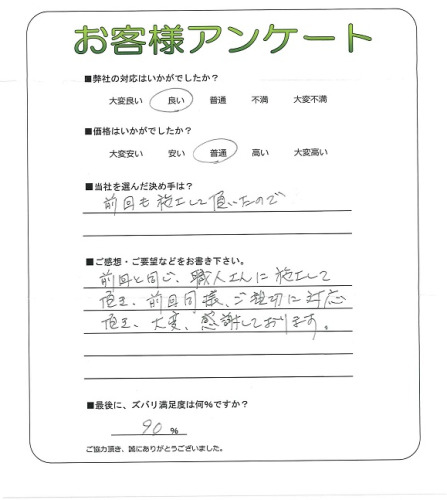 お客様アンケート
■弊社の対応はいかがでしたか？
大変良い 良い 普通 不満 大変不満
■価格はいかがでしたか？
大変安い 安い 普通 高い 大変高い
■当社を選んだ決め手は？
前回も施工して頂いたので
■ご感想・ご要望などをお書き下さい。
前回と同じ、職人さんに施工して
頂き、前回同様、ご親切に対応
頂き、大変、感謝しております。
■最後に、ズバリ満足度は何%ですか？
90 %
ご協力頂き、誠にありがとうございました。